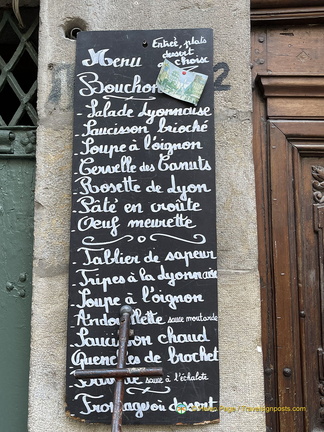 Menu
Entrée, plats
dessert
choisir
Bouchon
- Salade Lyonnaise
- Saucisson brioché
- Soupe à l'oignon
- Cervelle des Canuts
- Rosette de Lyon
- Pâté en croûte
- Œuf meurette
- Tablier de sapeur
- Tripes à la Lyonnaise
- Soupe à l'oignon
- Andouillette sauce moutarde
- Saucisson chaud
- Quenelles de brochet
sauce à l'échalote
- Fromage ou dessert